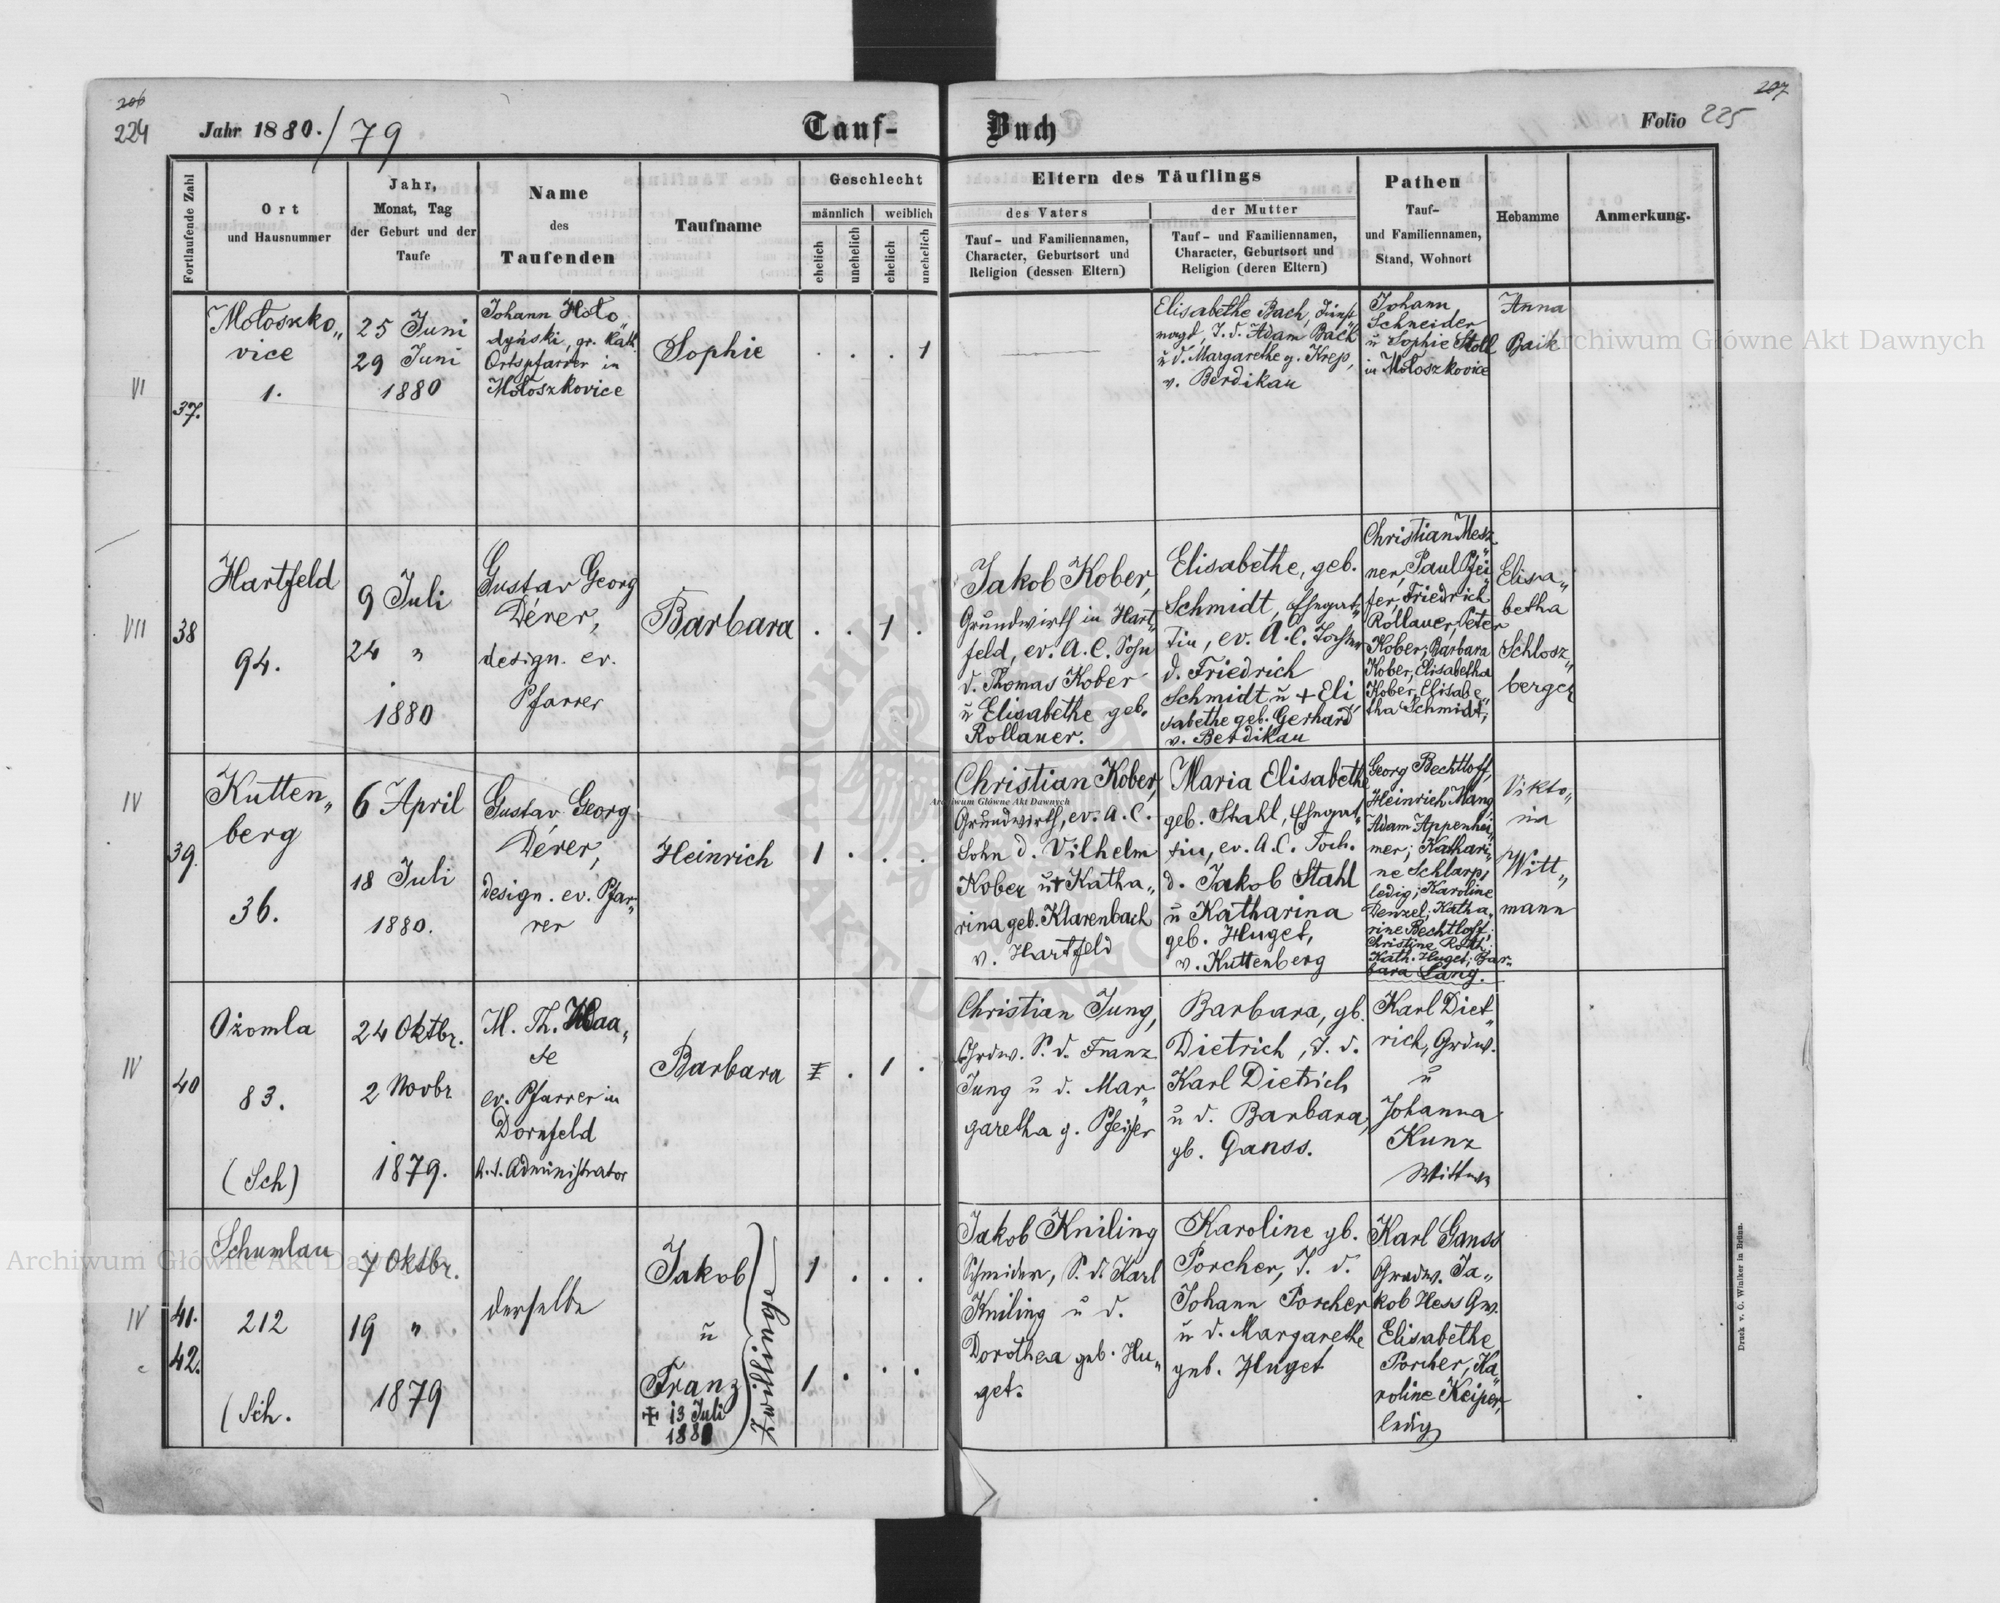 206
224
Jahr 1880./79
Tauf-
Buch
207
Folio 225
Fortlaufende Zahl
Ort
und Hausnummer
Jahr,
Monat, Tag
der Geburt und der
Taufe
Name
des
Taufenden
Taufname
Geschlecht
männlich
weiblich
ehelich
unehelich
ehelich
unehelich
Eltern des Täuflings
des Vaters
Tauf- und Familiennamen,
Character, Geburtsort und
Religion (dessen Eltern)
der Mutter
Tauf- und Familiennamen,
Character, Geburtsort und
Religion (deren Eltern)
Pathen
Tauf-
und Familiennamen,
Stand, Wohnort
Hebamme
Anmerkung.
VI
37.
Mołoszko„
vice
1.
25 Juni
29 Juni
1880
Johann Hoło
dyński, gr. kath.
Ortspfarrer in
Mołoszkovice
Sophie
. . . 1
Elisabethe Bach,
magd, T. d. Adam Bach
u d. Margarethe g. Krep,
v. Berdikau
Johann
Schneider
u Sophie Stoll
in Mołoszkovice
Anna
Baik
VII
38
Hartfeld
94.
9 Juli
24 "
1880
Gustav Georg
Dérer,
design. ev.
Pfarrer
Barbara
. . 1 .
Jakob Kober,
Grundwirth in Hart„
feld, ev. A. C. Sohn
d. Thomas Kober
u Elisabethe geb.
Rollauer.
Elisabethe, geb.
Schmidt, Ehegat„
tin, ev. A. C. Tochter
d. Friedrich
Schmidt u + Eli
sabethe geb. Gerhard
v. Berdikau
Christian Mesz„
ner, Paul Pfei„
fer, Friedrich
Rollauer, Peter
Kober; Barbara
Kober, Elisabetha
Kober, Elisabe„
tha Schmidt,
Elisa„
betha
Schlosz„
berger
IV
39.
Kutten„
berg
36.
6 April
18 Juli
1880.
Gustav Georg
Dérer,
design. ev. Pfar„
rer
Heinrich
1 . . .
Christian Kober,
Grundwirth, ev. A. C.
Sohn d. Vilhelm
Kober u + Katha„
rina geb. Klarenbach
v. Hartfeld
Maria Elisabethe
geb. Stahl, Ehegat„
tin, ev. A. C. Toch.
d. Jakob Stahl
u Katharina
geb. Huget,
v. Kuttenberg
Georg Bechtloff,
Heinrich Mang,
Adam Appenhei„
mer; Kathari„
ne Schlarp,
ledig; Karoline
Denzel; Katha„
rine Bechtloff;
Christine Roth;
Kath. Huget; Bar„
bara Lang.
Vikto„
ria
Witt„
mann
IV
40
Ożomla
83.
(Sch)
24 Oktbr.
2 Novbr
1879.
M. Th. Haa„
se
ev. Pfarrer in
Dornfeld
h. t. Administrator
Barbara
. 1 .
Christian Jung,
Grdw. S. d. Franz
Jung u d. Mar„
garetha g. Pfeifer
Barbara, gb.
Dietrich, T. d.
Karl Dietrich
u d. Barbara,
gb. Ganss.
Karl Diet„
rich, Grdw.
u
Johanna
Kunz
Wittwe
IV
41.
42.
Schumlau
212
(Sch.
7 Oktbr.
19 "
1879
derselbe
Jakob
u
Franz
✠ 13 Juli
1880
Zwillinge
1 . . .
1 . . .
Jakob Kniling
Schneider, S. d. Karl
Kniling u d.
Dorothea geb. Hu„
get.
Karoline gb.
Porcher, T. d.
Johann Porcher
u d. Margarethe
geb. Huget
Karl Ganss
Grdw. Ja„
kob Hess Gw.
Elisabethe
Porcher, Ka„
roline Keiper,
ledig
Druck v. C. Winiker in Brünn.
Archiwum Główne Akt Dawnych
Archiwum Główne Akt Dawnych
Archiwum Główne Akt Dawnych